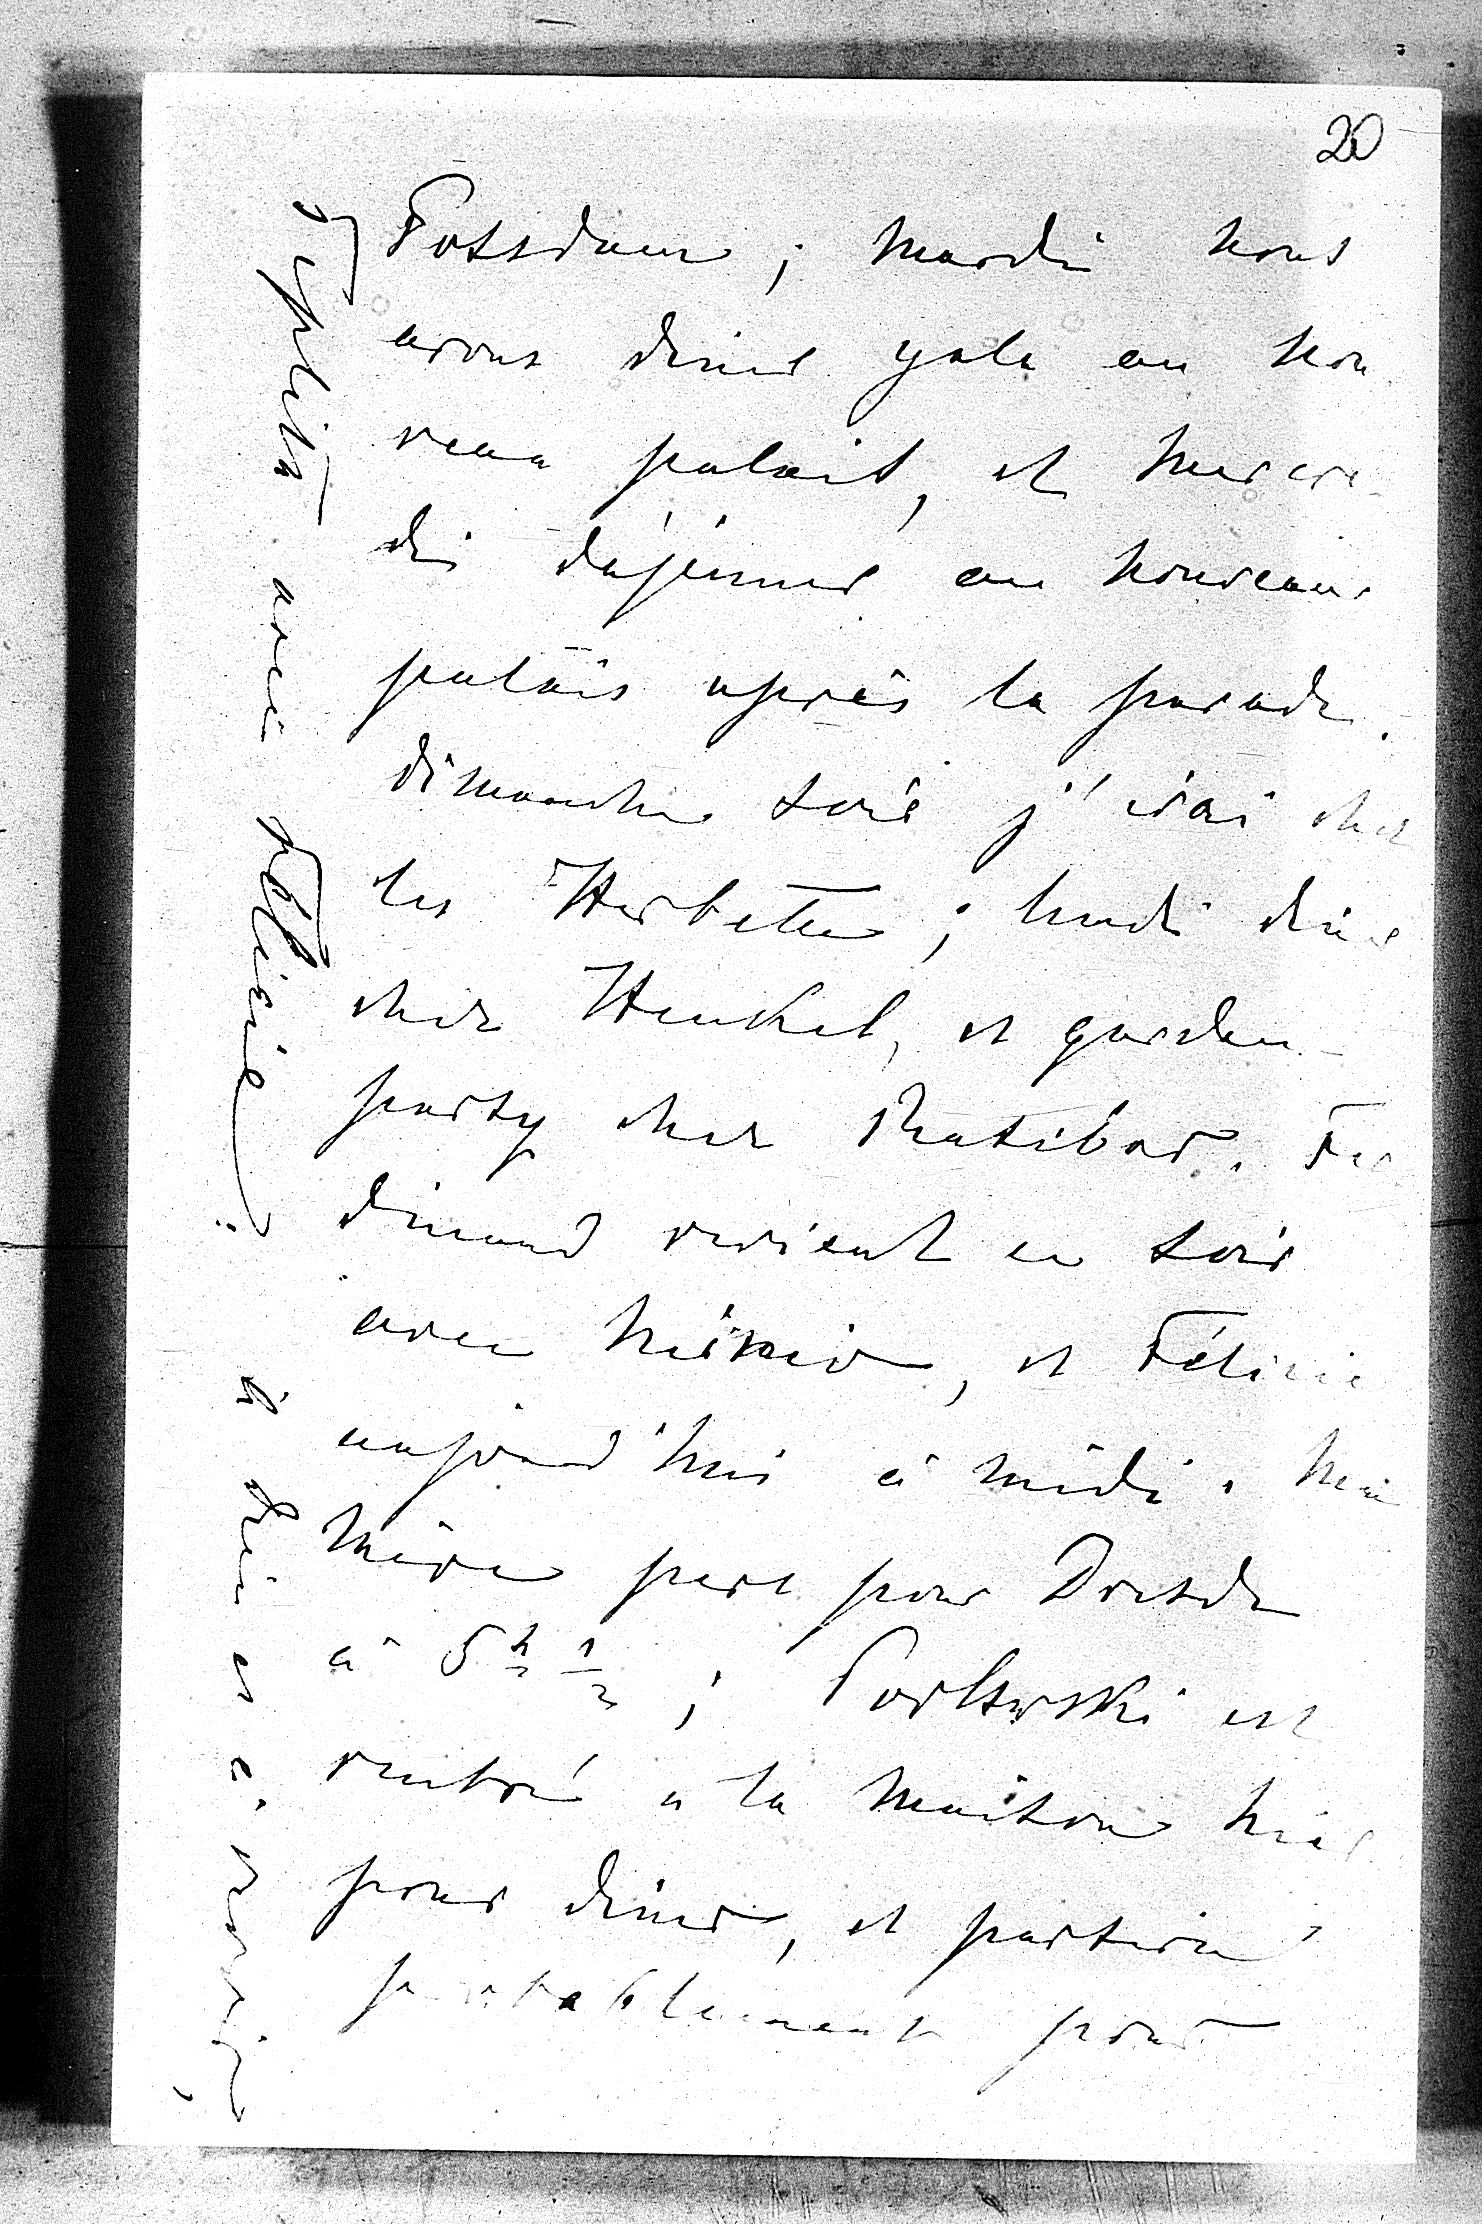 20
Potsdam ; mardi nous
avons diné gala au nou
veau palais, et mercre-
di déjeuner au nouveau
palais après la parade.
dimanche soir j'irai chez
les Herbette ; lundi diné
chez Henkel, et garden-
party chez Ratibor. Fer
dinand revient ce soir
avec , et Félicie
aujourd'hui à midi. Ma
mère part pour Dresde
à 5 h 1/2 ; est
rentré à la maison hier
pour diner, et partira
probablement pour
Teplitz avec Félicie.
à Dieu et à revoir,